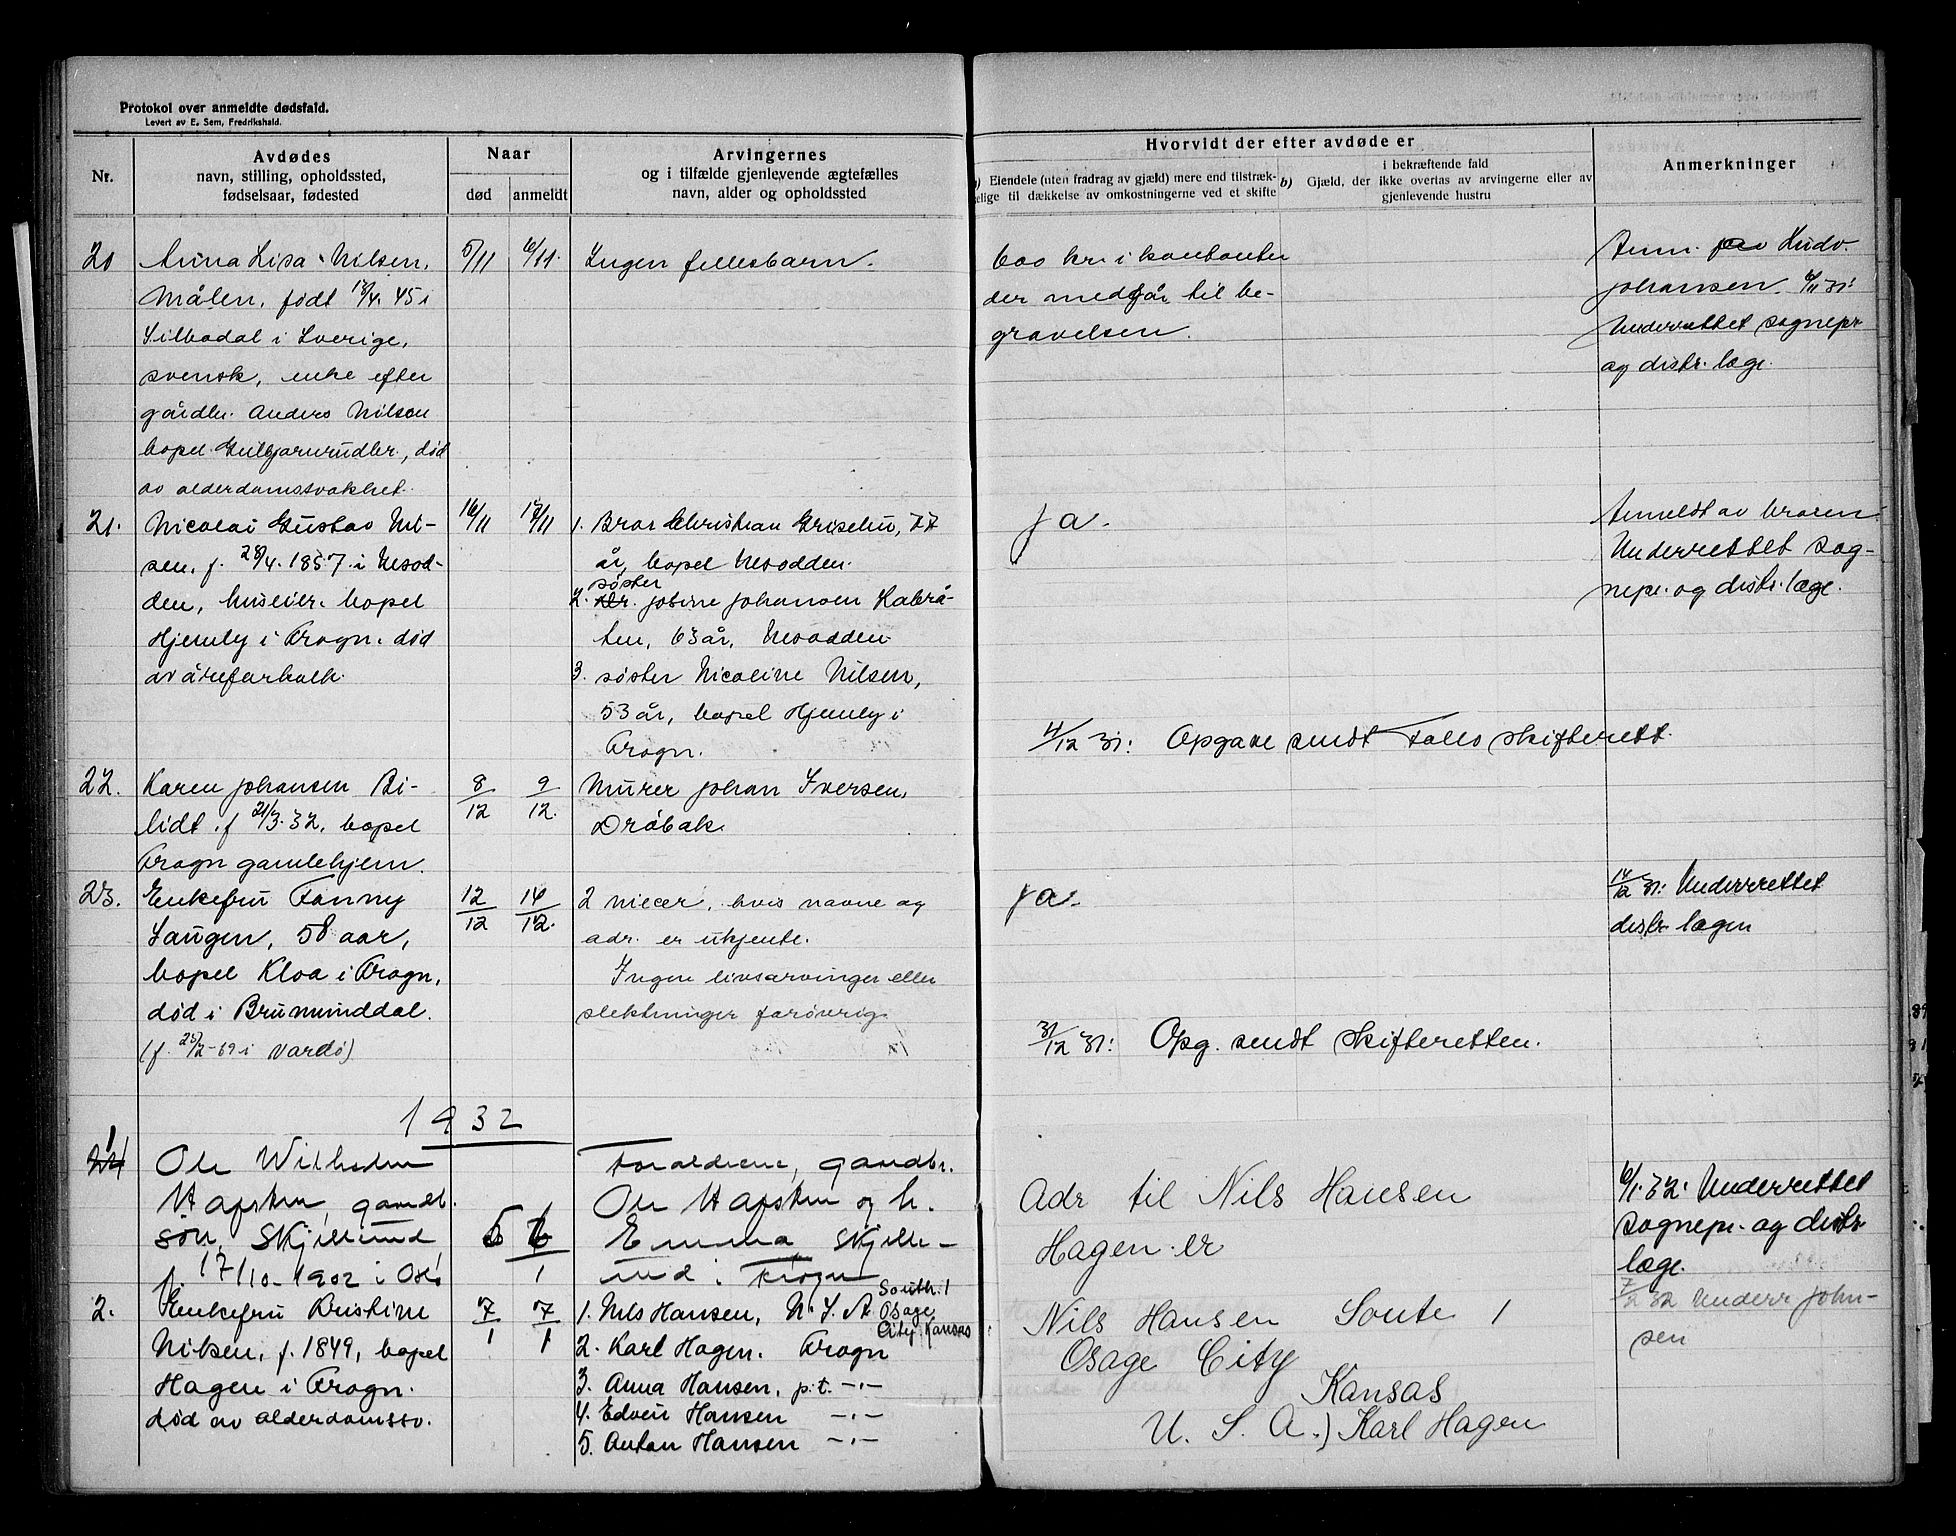 Protokol over anmeldte dødsfald.
Levert av E. Sem, Fredrikshald.
Nr.
Avdødes
navn, stilling, opholdssted,
fødselsaar, fødested
Naar
død
anmeldt
Arvingernes
og i tilfælde gjenlevende ægtefælles
navn, alder og opholdssted
Hvorvidt der efter avdøde er
Eiendele (uten fradrag av gjæld) mere end tilstræk-
elige til dækkelse av omkostningerne ved et skifte
b) Gjæld, der i bekræftende fald
ikke overtas av arvingerne eller av
gjenlevende hustru
Anmerkninger
20
Anna Lisa Nilsen,
Målen, født 13/4. 45 i
Silbodal i Sverige,
svensk, enke efter
gårdbr. Anders Nilsen
bopel Gulbjørnrudbr., død
av alderdomssvakhet.
5/11
6/11.
Ingen fellesbarn.
600 kr. i kontanter
der medgår til be-
gravelsen.
Anm. Ludv.
Johansen. 6/11 31:
Underrettet sognepr
og distr. læge.
21.
Nicolai Gustav Nil-
sen, f. 28/4. 1857 i Nesod-
den, huseier. bopel
Hjemly i Frogn. død
av åreforkalk.
16/11
17/11
1. Bror Christian Grisebu, 77
år, bopel Nesodden.
søster
2. Josine Johansen Kabrå-
ten, 63 år, Nesodden
3. søster Nicoline Nilsen,
53 år, bopel Hjemly i
Frogn.
ja.
Anmeldt av broren.
Underrettet sog-
nepr. og distr. læge.
4/12 31: Opgave sendt Follo skifterett.
22.
Karen Johansen Bi-
lidt. f 21/3. 32, bopel
Frogn gamlehjem.
8/12
9/12.
Murer Johan Iversen,
Drøbak
23.
Enkefru Fanny
Haugen, 58 aar,
bopel Kloa i Frogn,
død i Brumunddal.
(f. 25/2-69 i Vardø)
12/12
14/12.
2 niecer, hvis navne og
adr. er ukjente.
Ingen livsarvinger eller
slektninger forøvrig.
ja.
14/12 31: Underrettet
distr. lægen
31/12 31: Opg. sendt skifteretten.
1932
1
24
Ole Wilhelm
Hafsten, gaardb.
søn, Skjellerud
f. 17/10-1902 i Oslo
6
6/1
Forældrene, gaardbr.
Ole Hafsten og h.
Emma Skjelle-
rud i Frogn
6/1.32. Underrettet
sognepr. og distr
læge.
2.
Enkefru Kristine
Nilsen, f. 1849, bopel
Hagen i Frogn.
død av alderdomssv.
7/1
7/1
1. Nils Hansen, U. S. A. South. 1
Osage
City. Kansas
2. Karl Hagen. Frogn
3. Anna Hansen, p.t. -"-
4. Edvin Hansen -"-
5. Anton Hansen -"-
Adr til Nils Hansen
Hagen. er
Nils Hansen Soute 1
Osage City
Kansas
U. S. A.) Karl Hagen
7/2 32 Underr John-
sen